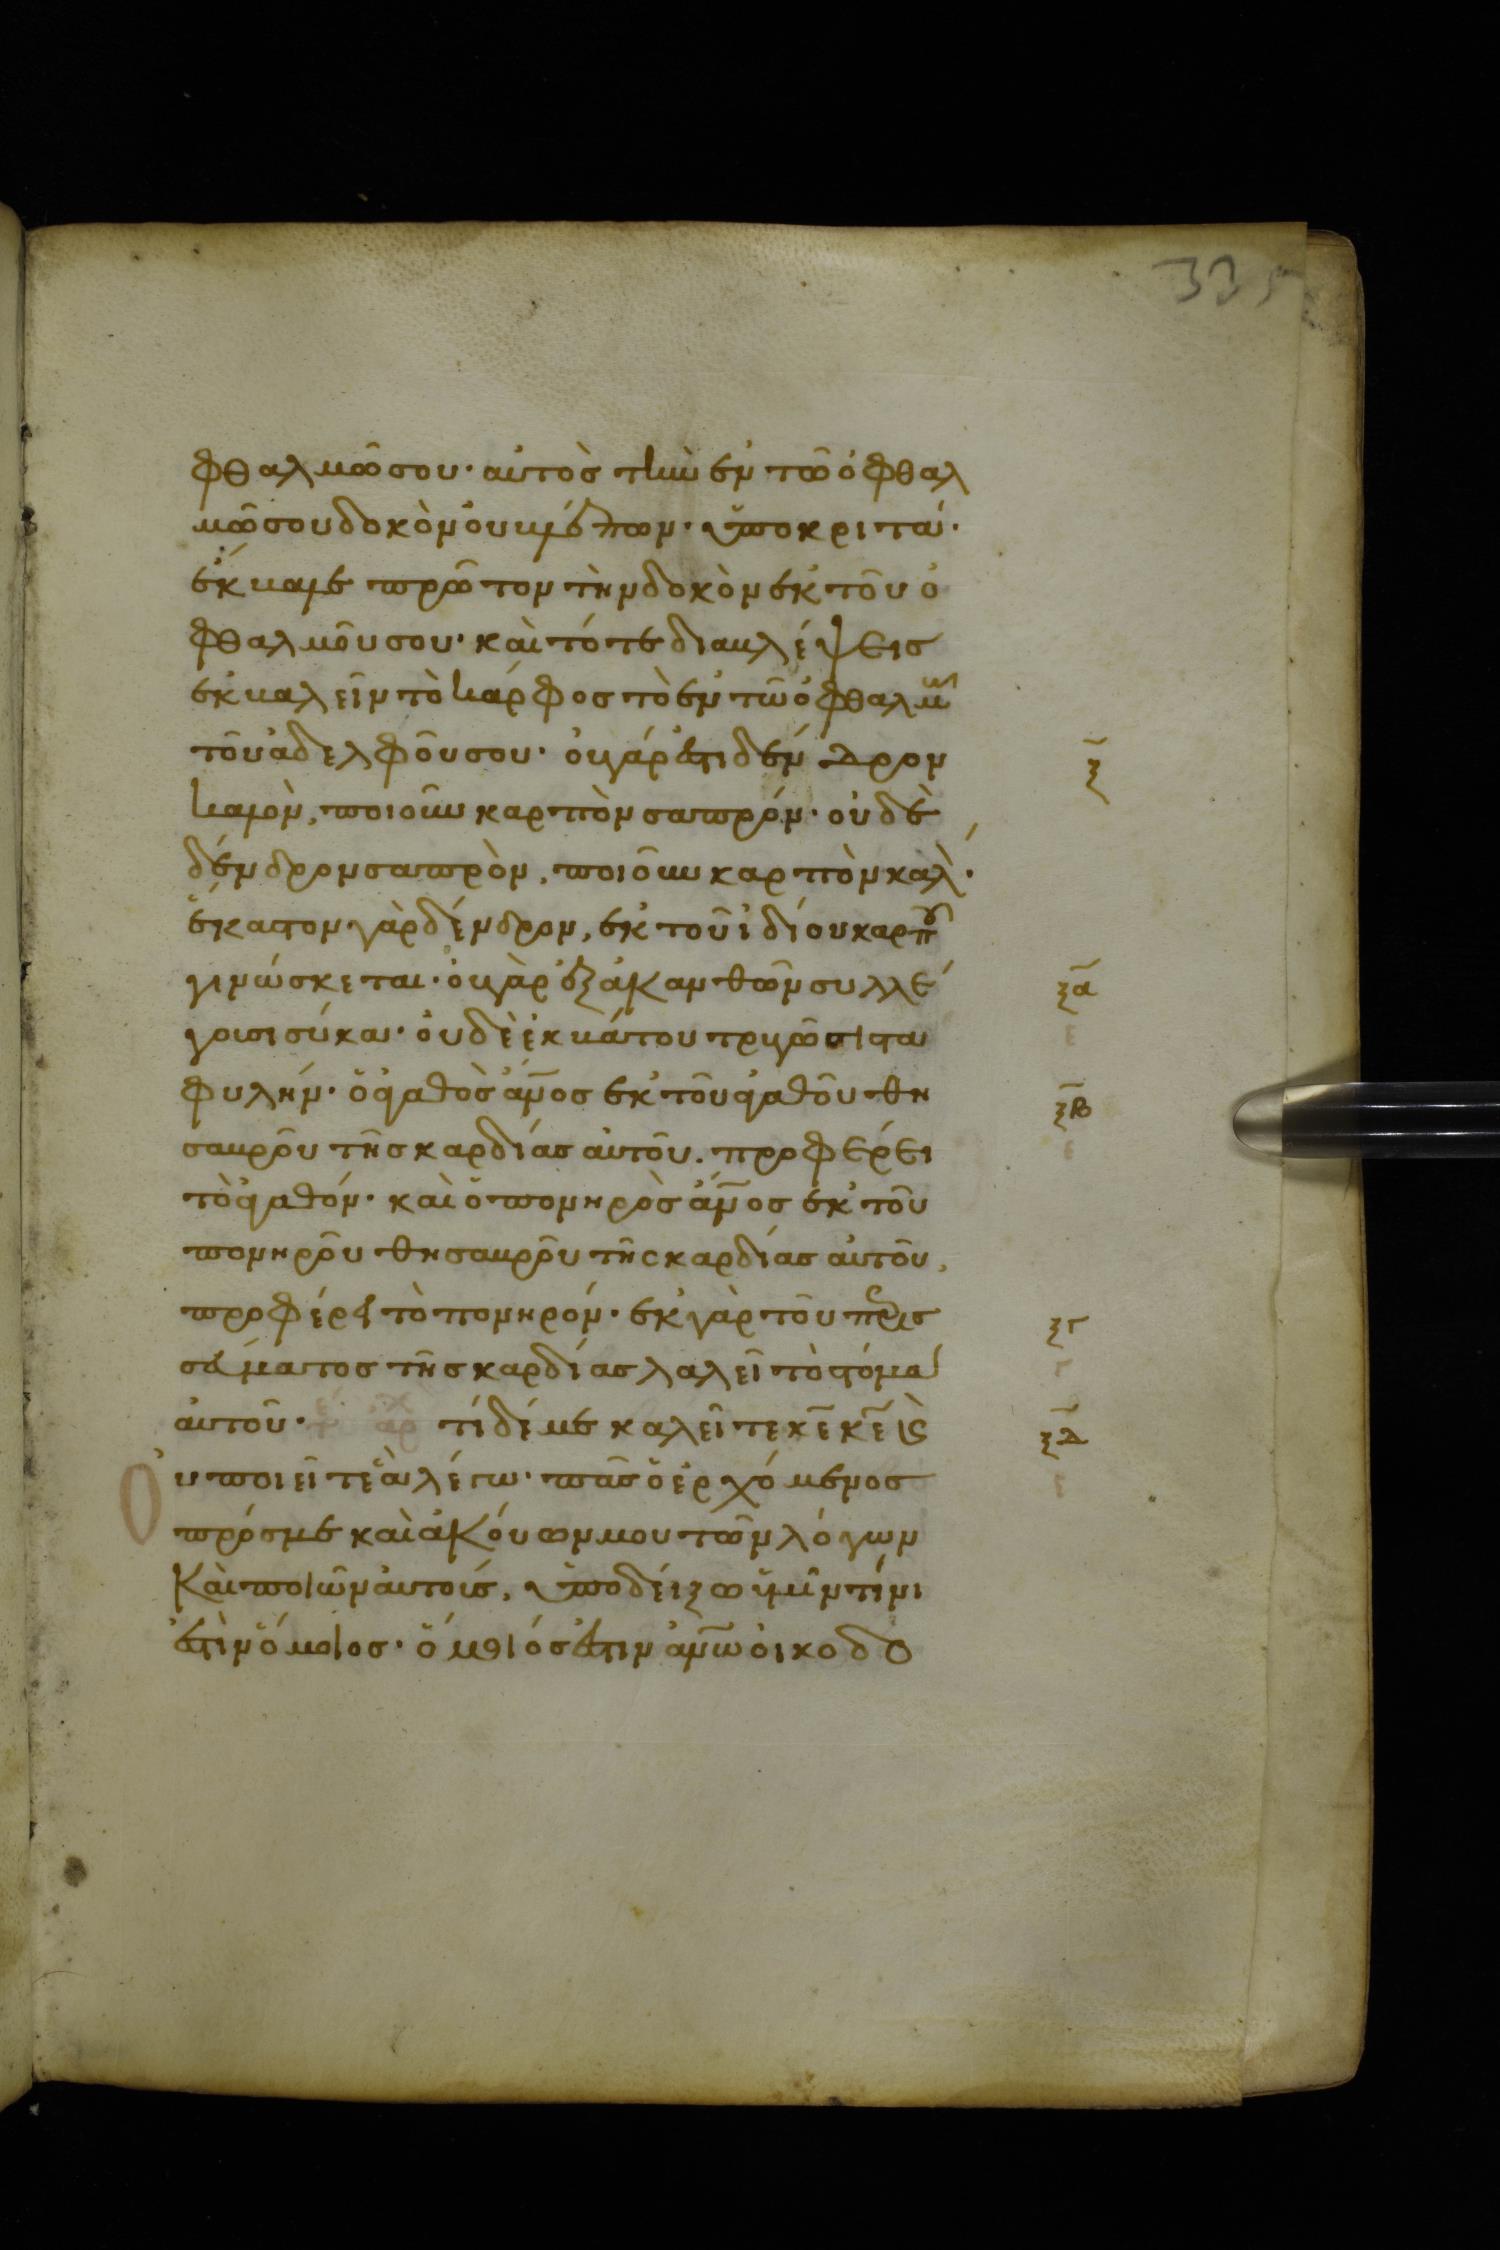 335
φθαλμῶ σου· αὐτὸς τὴν ἐν τῶ ὀφθαλ
μῶ σου δοκὸν οὐ βλέπων· ὑποκριτά·
ἔκβαλε πρῶτον τὴν δοκὸν ἐκ τοῦ ὀ
φθαλμοῦ σου· καὶ τότε διαβλέψεις
ἐκβαλεῖν τὸ κάρφος τὸ ἐν τῶ ὀφθαλμῶ
τοῦ ἀδελφοῦ σου· οὐ γάρ ἐστι δένδρον ξ̄
καλὸν, ποιοῦν καρπὸν σαπρόν· οὐδὲ
δένδρον σαπρὸν, ποιοῦν καρπὸν καλὸ·
ἕκαστον γὰρ δένδρον, ἐκ τοῦ ἰδίου καρποῦ
γινώσκεται· οὐ γὰρ ἐξ ἀκανθῶν συλλέ ξᾱ
γουσι σύκα· οὐδὲ ἐκ βάτου τρυγῶσι στα
φυλήν· ὁ ἀγαθὸς ἄν̄ος ἐκ τοῦ ἀγαθοῦ θη ξβ̄
σαυροῦ τῆς καρδίας αὐτοῦ. προφέρει
τὸ ἀγαθόν· καὶ ὁ πονηρὸς ἄν̄ος ἐκ τοῦ
πονηροῦ θησαυροῦ τῆς καρδίας αὐτοῦ,
προφέρει τὸ πονηρόν· ἐκ γὰρ τοῦ περισ ξγ
σεύματος τῆς καρδίας λαλεῖ τὸ στόμα
αὐτοῦ· τί δέ με καλεῖτε κ̄ε κ̄ε καὶ ξδ̄
Οὐ ποιεῖτε ἃ λέγω· πᾶς ὁ ἐρχόμενος
πρός με καὶ ἀκούων μου τῶν λόγων
καὶ ποιῶν αὐτούς, ὑποδείξω ὑμῖν τίνι
ἐστὶν ὅμοιος· ὅμοιός ἐστιν ἀν̄ω οἰκοδο